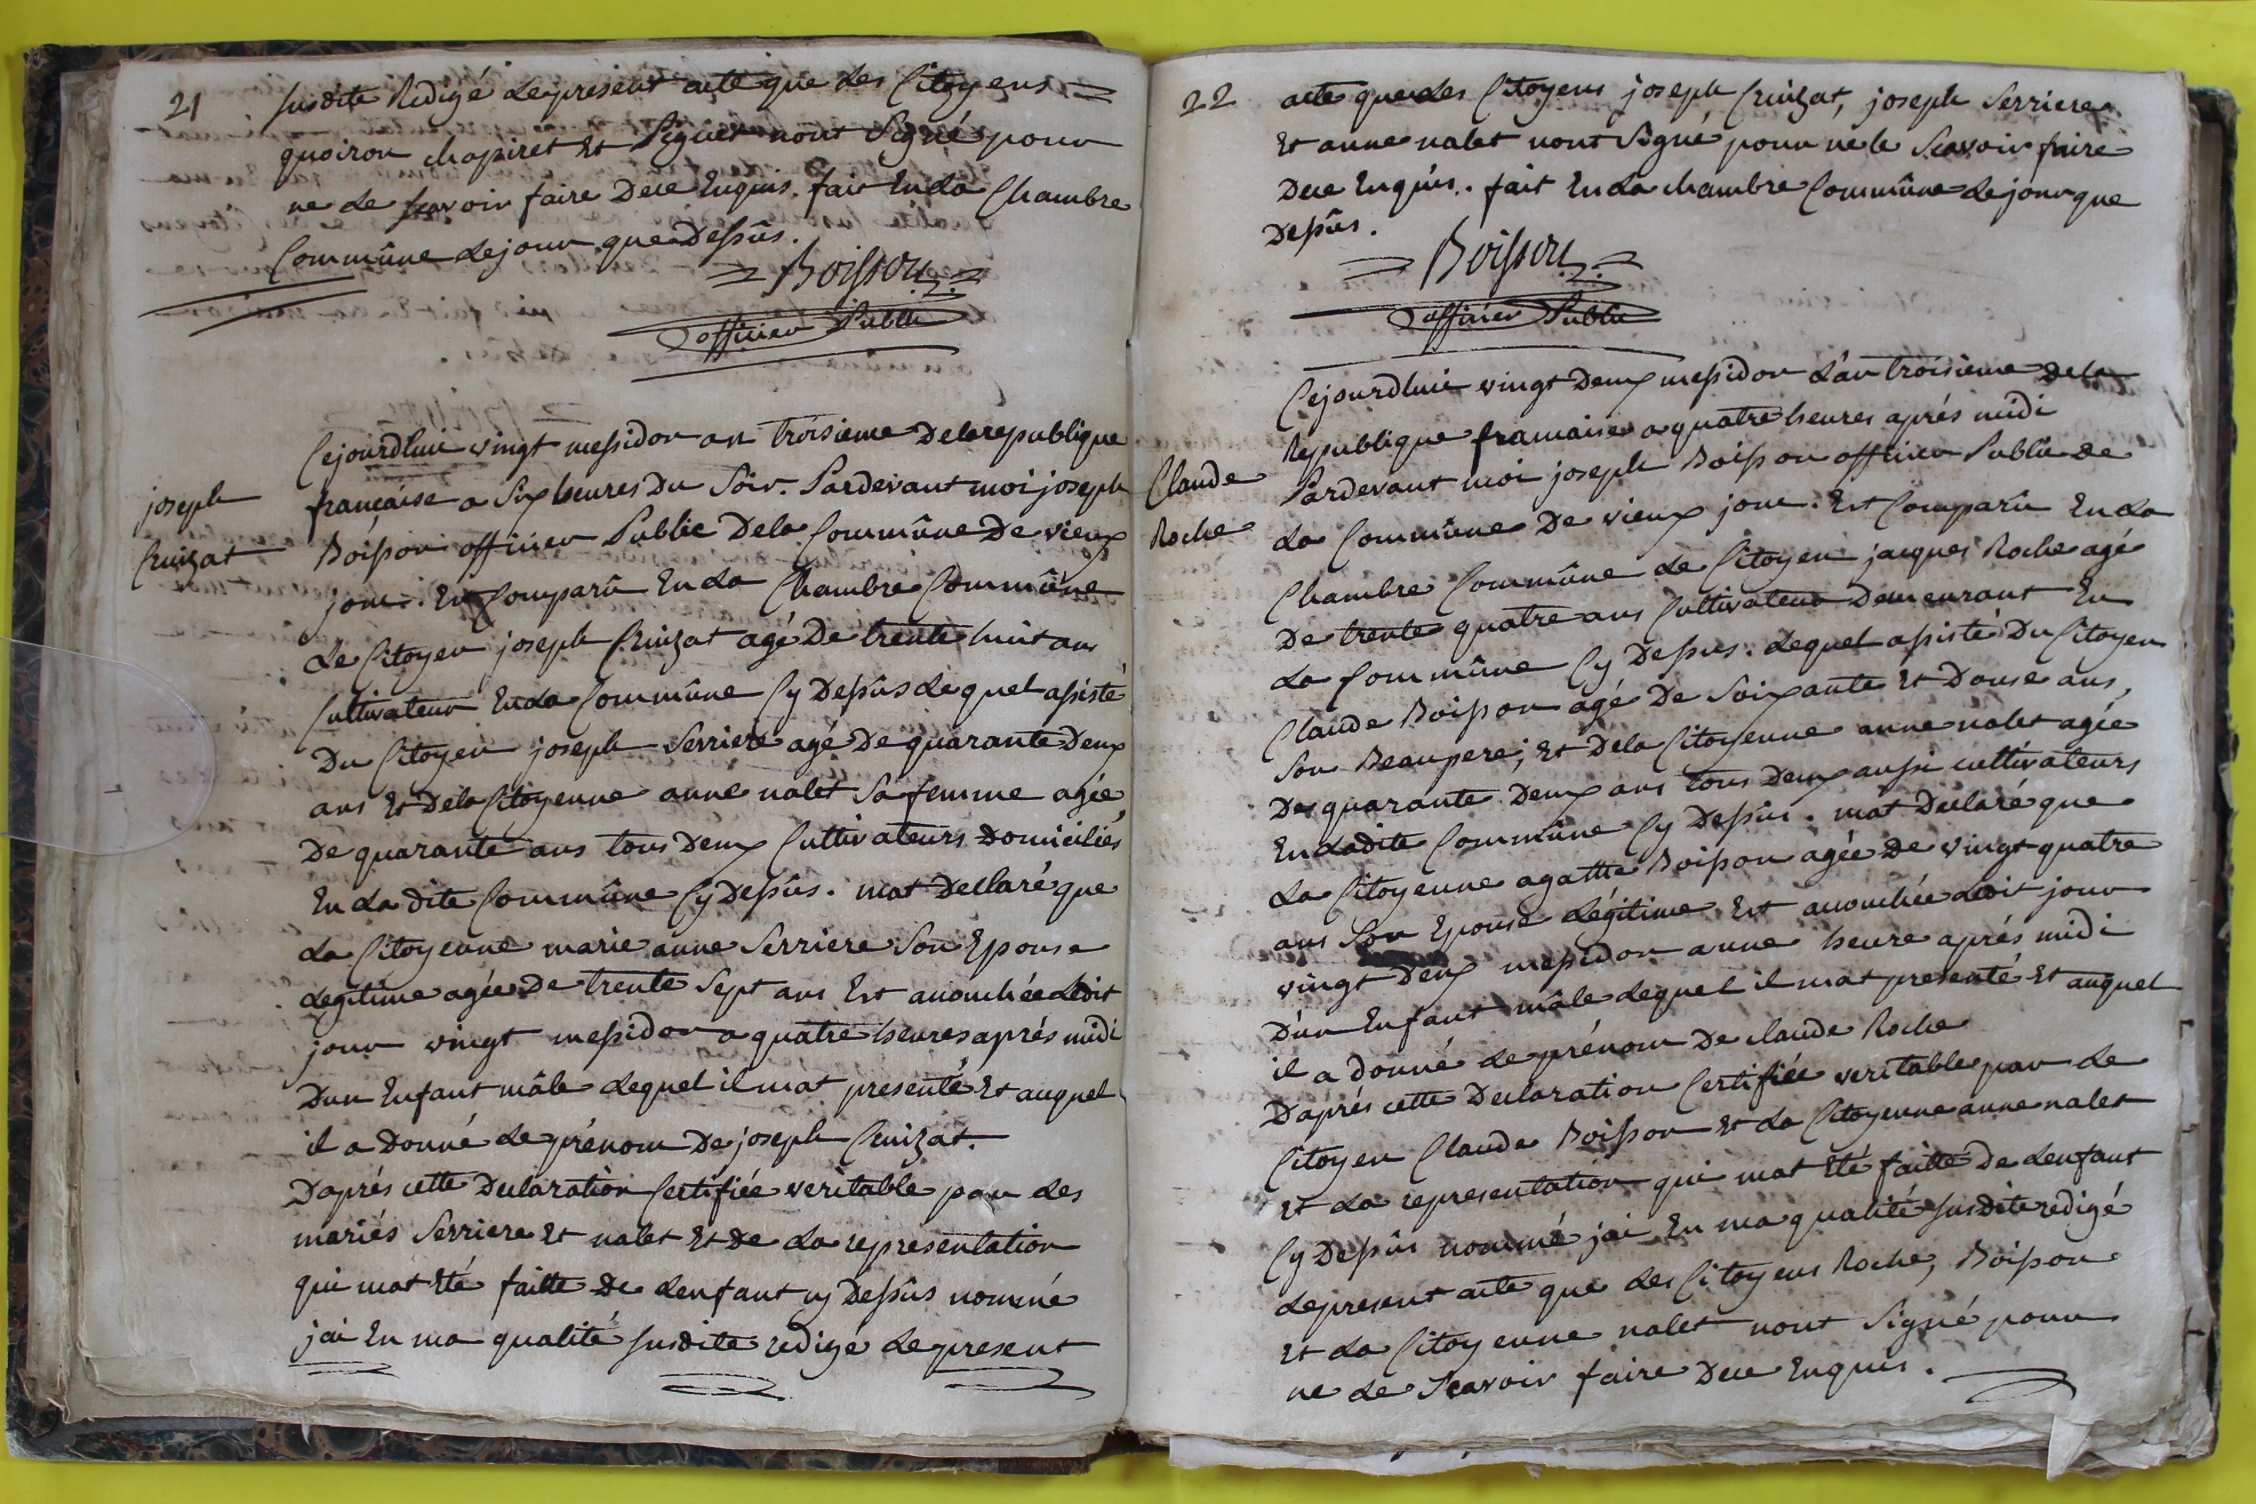 21
susdite Redigé le present acte que les Citoyens
quoiron chapiret Et Siguet nont Signé pour
ne le sçavoir faire Dece Enquis. fait En la Chambre
Commûne le jour que Dessûs.
Boisson
officier Public
Cejourdhui vingt messidor an troisieme De la republique
joseph
française a Six heures Du Soir. Pardevant moi joseph
Cruizat
Boisson officier Public De la Commûne De vieux
jonc. Est Comparû En la Chambre Commûne
Le Citoyen joseph Cruizat agé De trente huit ans
Cultivateur En la Commûne Cy Dessûs Lequel assisté
Du Citoyen joseph Serriere agé De quarante Deux
ans Et De la Citoyenne anne nalet Sa femme agée
De quarante ans tous Deux Cultivateurs Domiciliés
En la dite Commûne Cy Dessûs. mat Declaré que
La Citoyenne marie anne Serriere Son Epouse
Legitime agée De trente Sept ans Est accouchée Ledit
jour vingt messidor a quatre heures aprés midi
Dun Enfant mâle Lequel il mat presenté Et auquel
il a Donné le prénom De joseph Cruizat.
D'aprés cette Declaration Certifiée veritable par les
mariés Serriere Et nalet Et De la representation
qui mat Eté faitte De Lenfant cy Dessûs nommé
jai En ma qualité susdite redigé Le present
22
acte que les Citoyens joseph Cruizat, joseph Serriere
Et anne nalet nont Signé pour ne le Scavoir faire
Dece Enquis. fait En la chambre Commûne Le jour que
Dessûs.
Boisson
officier Public
Cejourdhui vingt Deux messidor L'an troisieme De la
Republique francaise a quatre heures aprés midi
Claude
Pardevant moi joseph Boisson officier Public De
Roche
La Commûne De vieux jonc. Est Comparû En la
Chambre Commûne le Citoyen jacques Roche agé
De trente quatre ans Cultivateur Demeurant En
La Commûne Cy Dessus. Lequel assisté Du Citoyen
Claude Boisson agé De Soixante Et Douse ans,
Son Beaupere; Et De la Citoyenne anne nalet agée
De quarante Deux ans tous Deux aussi cultivateurs
En Ladite Commûne Cy Dessûs. mat Declaré que
La Citoyenne agatte Boisson agée De vingt quatre
ans Son Epouse Légitime Est accouchée Ledit jour
vingt Deux messidor a une heure aprés midi
D'un Enfant mâle Lequel il mat presenté Et auquel
il a Donné Le prénom De claude Roche
D'aprés cette Declaration Certifiée veritable par Le
Citoyen Claude Boisson Et la Citoyenne anne nalet
Et La representation qui mat Eté faitte De Lenfant
Cy Dessûs nommé jai En ma qualité susdite redigé
Le present acte que les Citoyens Roche, Boisson
Et La Citoyenne nalet nont Signé pour
ne le Scavoir faire Dece Enquis.